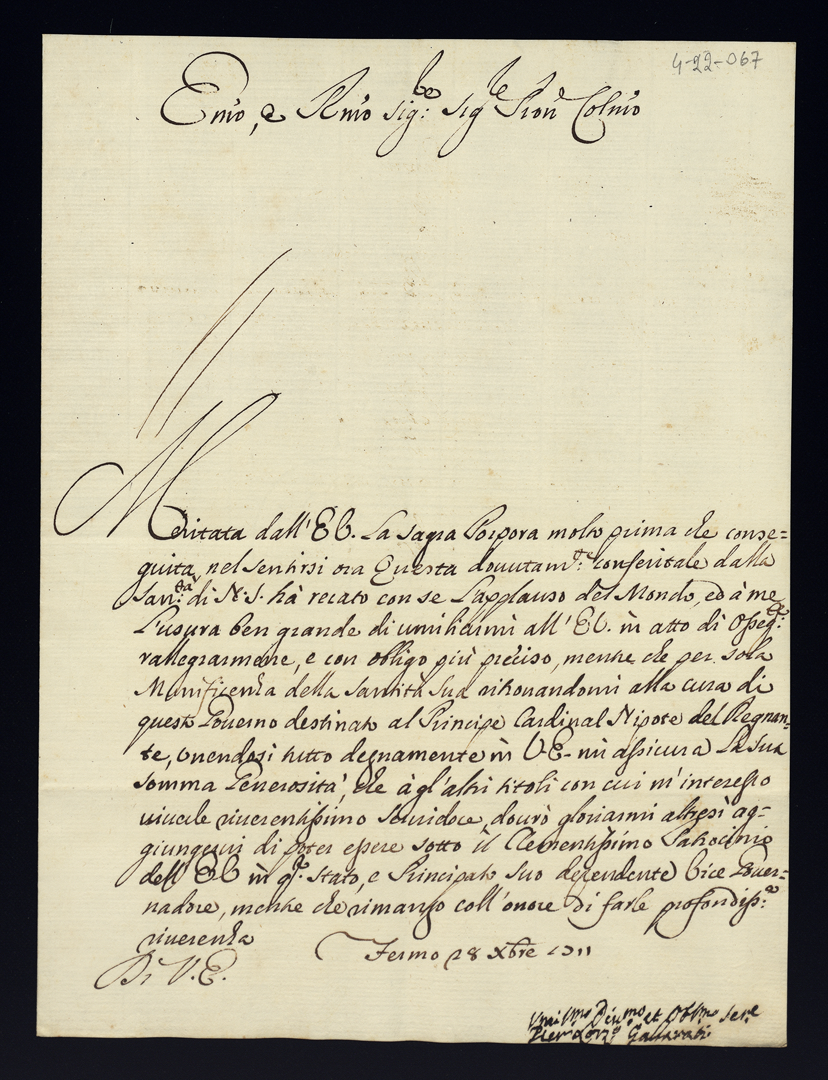 4-22-067
Emo, e Rmo Sig:re Sigle Pron Colmo
Meritata dall'E V. La sagra Porpora molto prima che conse=
guita, nel sentirsi ora Questa douutam:te conferitale dalla
San:tà di N: S. hà recato con se L'applauso del Mondo, ed à me
L'usura ben grande di umiliarmi all'E V. in atto di osseq:
rallegrarmene, e con obligo più preciso, mentre che per sola
Munificenza della Santità Sua ritrouandomi alla cura di
questo Gouerno destinato al Principe Cardinal Nipote del Regnan=
te, unendosi tutto degnamente in V E. mi assicura La sua
somma Generosità, che à gl'altri titoli con cui m'interesso
uiuerle riuerentissimo Seruidore, dourò gloriarmi altresì ag=
giungerui di poter essere sotto il Clementissimo Patrocinio
dell'E V in q:to Stato, e Principato suo dependente Vice Gouer=
nadore, mentre che rimango coll'onore di farle profondiss:a
riuerenza
Di V. E. Fermo 28 Xbre 1711
Umilmo Diumo et Obbmo Sere
Pier Gallarati